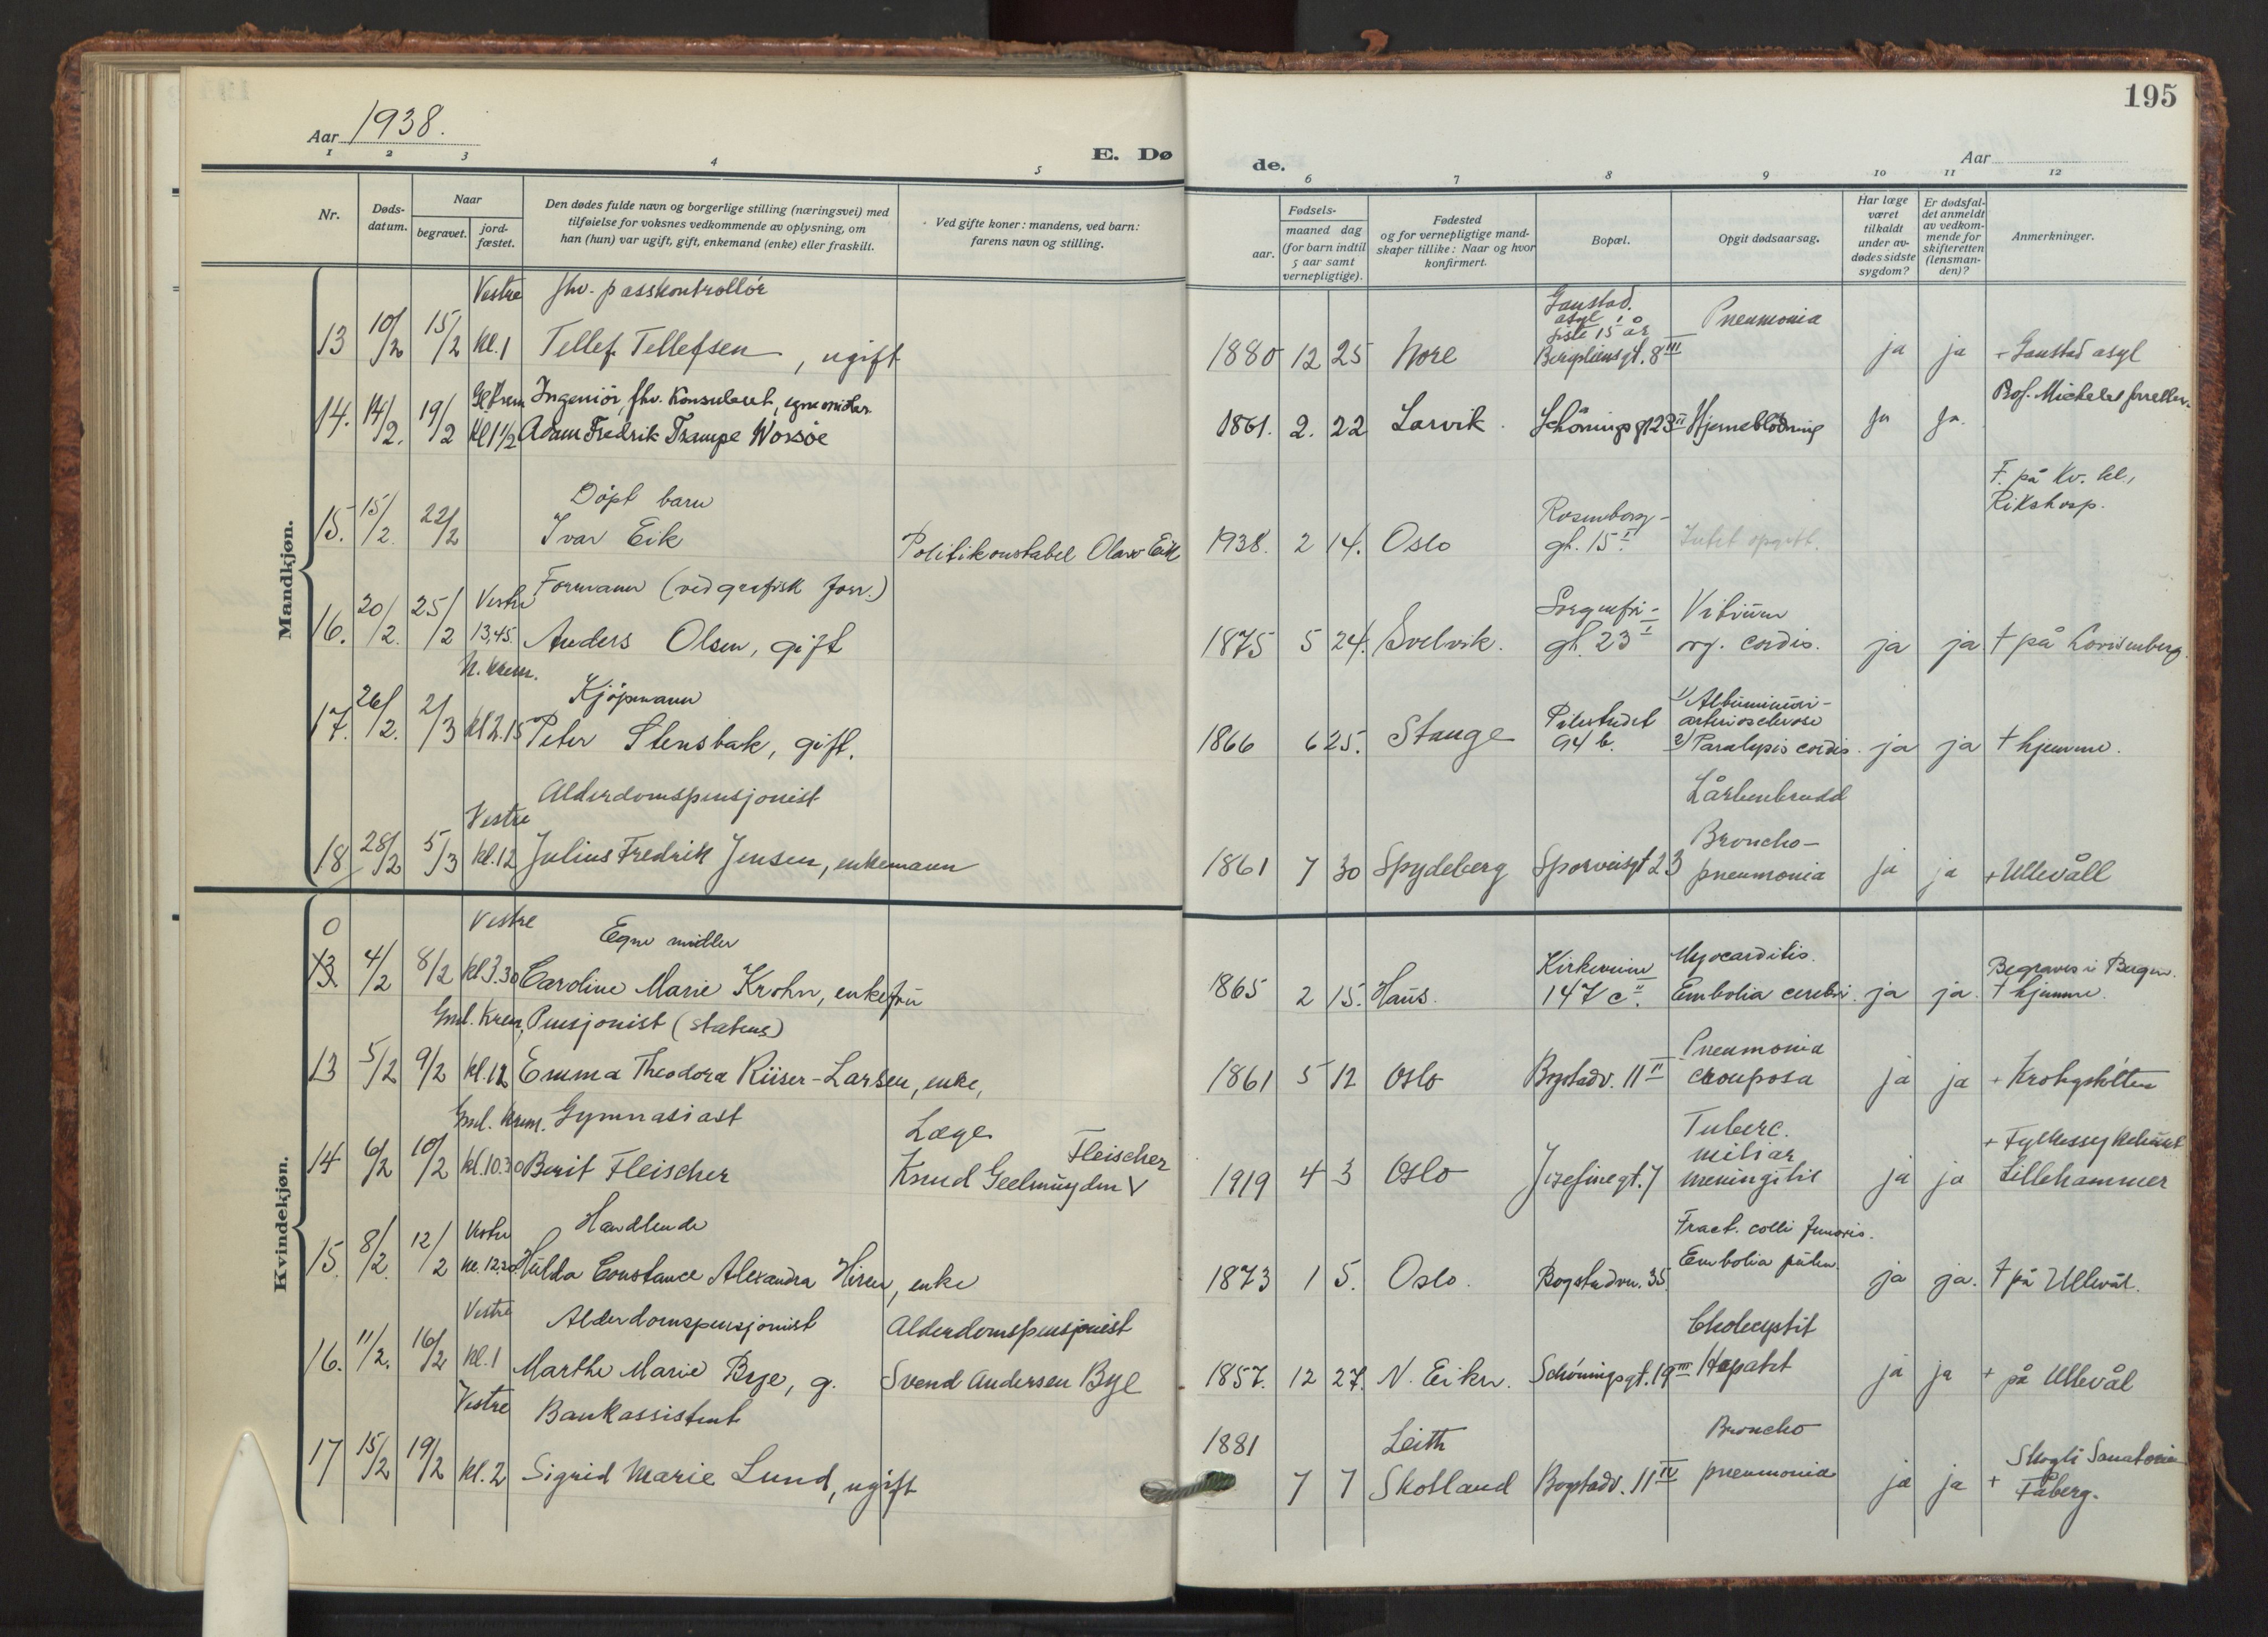 195
Aar 1938.
Aar
E. Dø
de.
1 2 3 4 5
6 7 8 9 10 11 12
Nr.
Døds-
datum.
Naar
begravet.
jord-
fæstet.
Den dødes fulde navn og borgerlige stilling (næringsvei) med
tilføielse for voksnes vedkommende av oplysning, om
han (hun) var ugift, gift, enkemand (enke) eller fraskilt.
Ved gifte koner: mandens, ved barn:
farens navn og stilling.
Fødsels-
aar.
maaned dag
(for barn indtil
5 aar samt
vernepligtige).
Fødested
og for vernepligtige mand-
skaper tillike: Naar og hvor
konfirmert.
Bopæl.
Opgit dødsaarsag.
Har læge
været
tilkaldt
under av-
dødes sidste
sygdom?
Er dødsfal-
det anmeldt
av vedkom-
mende for
skifteretten
(lensman-
den)?
Anmerkninger.
Mandkjøn.
Vestre fhv. passkontrollør
Gaustad
asyl i
siste 15 år
Pneumonia
13 10/2 15/2 kl. 1 Tellef Tellefsen, ugift
1880 12 25 Nore Bergsliensgt. 8 III ja ja + Gaustad asyl
Gl Krem Ingeniör, fhv. Konsulent, egne midler
14. 14/2. 19/2 Kl 1 1/2 Adam Fredrik Trampe Worsöe
1861. 2. 22 Larvik. Schönings gt 23 II Hjerneblödning ja ja.
Döpt barn
F. på Kv. kl.,
Rikshosp.
15. 15/2. 22/2 Ivar Eik
Politikonstabel Olav Eik
Rosenborg-
1938. 2 14. Oslo gt. 15 I Intet opgitt.
Vestre Formann (ved grafisk forr.)
Sorgenfri- Vitium
16. 20/2. 25/2 13,45. Anders Olsen, gift
1875 5 24. Svelvik. gt. 23 I org. cordis. ja ja † på Lovisenberg.
N. Krem.
Kjöpmann
17. 26/2. 2/3 kl 2.15 Peter Stensbak, gift.
1) Albuminuri-
Pilestredet arteriosclerose
1866 6 25. Stange 94 b. 2) Paralysis cordis. ja ja † hjemme.
Alderdomspensjonist
Vestre
Lårbenbrudd
18 28/2 5/3 kl. 12 Julius Fredrik Jensen, enkemann
Broncho-
1861 7 30 Spydeberg Sporveisgt 23 pneumonia ja ja + Ullevåll
Kvindekjøn.
0
Vestre Egne midler
13 4/2 8/2 kl 3.30 Caroline Marie Krohn, enkefru
Kirkeveien Myocarditis. Begraves i Bergen.
1865 2 15. Haus. 147 c II. Embolia cerebri. ja ja. † hjemme.
Gml. Krem. Pensjonist (statens)
13 5/2 9/2 kl. 12 Emma Theodora Riiser-Larsen, enke,
Pneumonia
1861 5 12 Oslo Bogstadv. 11 II crouposa ja ja + Krohgstötten
Gml. Krem. Gymnasiast
Læge
14 6/2 10/2 kl. 10.30 Berit Fleischer
Fleischer
Knud Geelmuyden V
Tuberc.
miliar
1919 4 3 Oslo Josefinegt. 7 meningitis ja ja
+ Fylkessykehuset
Lillehammer
Vestre Handlende
15. 8/2. 12/2 kl. 12.20 Hulda Constance Alexandra Hiren, enke
Fract. colli femoris.
Embolia pulm.
1873 1 5. Oslo. Bogstadvn. 35. ja ja. † på Ullevål.
Vestre Alderdomspensjonist
Alderdomspensjonist
16. 11/2. 16/2 kl. 1 Marthe Marie Bye, g.
Svend Andersen Bye
Cholecystit
1857. 12 27. N. Eiker. Schöningsgt. 19 III Hepatit ja ja + på Ullevål
Vestre Bankassistent
17 15/2 19/2 kl. 2 Sigrid Marie Lund, ugift
1881 Leith Broncho
7 7 Skotland Bogstadv. 11 IV pneumonia ja ja +
Skogli Sanatorium
Fåberg.